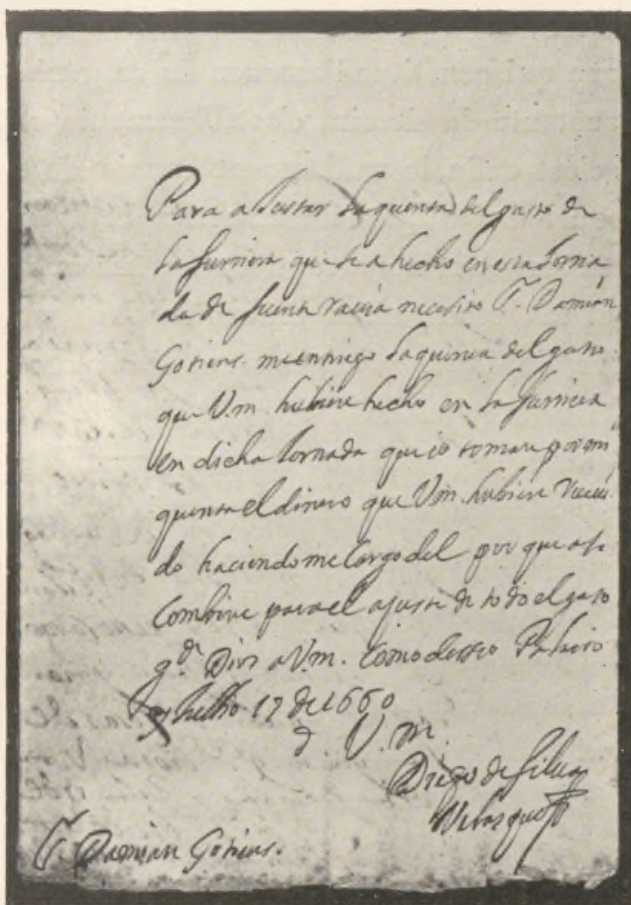 Para ajustar la quenta del gasto de
la furriera que se a hecho en esta Jorna
da de fuenta ravia necesito Sr. Damian
Gotiens. me entriege la quenta del gasto
que V.m. hubiere hecho en la furriera
en dicha Jornada que io tomare por mi
quenta el dinero que V.m. hubiere
do haciendome Cargo del por que asi
Combiene para el ajuste de todo el gasto
g.de Dios a V.m. Como desseo Palacio
y Jullio 17 de 1660
d V.m.
Diego de Silva
Velasquez
Sr. Damian Gotiens.